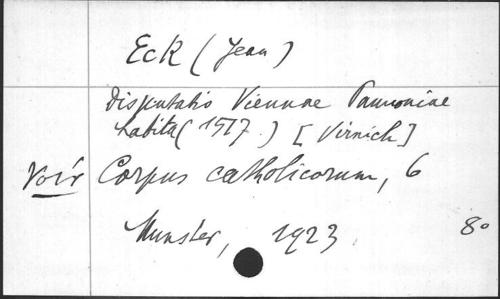 Eck (Jean)
Disputatio Viennae Pannoniae
habita (1517.) [Virnich]
Voir Corpus catholicorum, 6
Munster, 1923. 8o